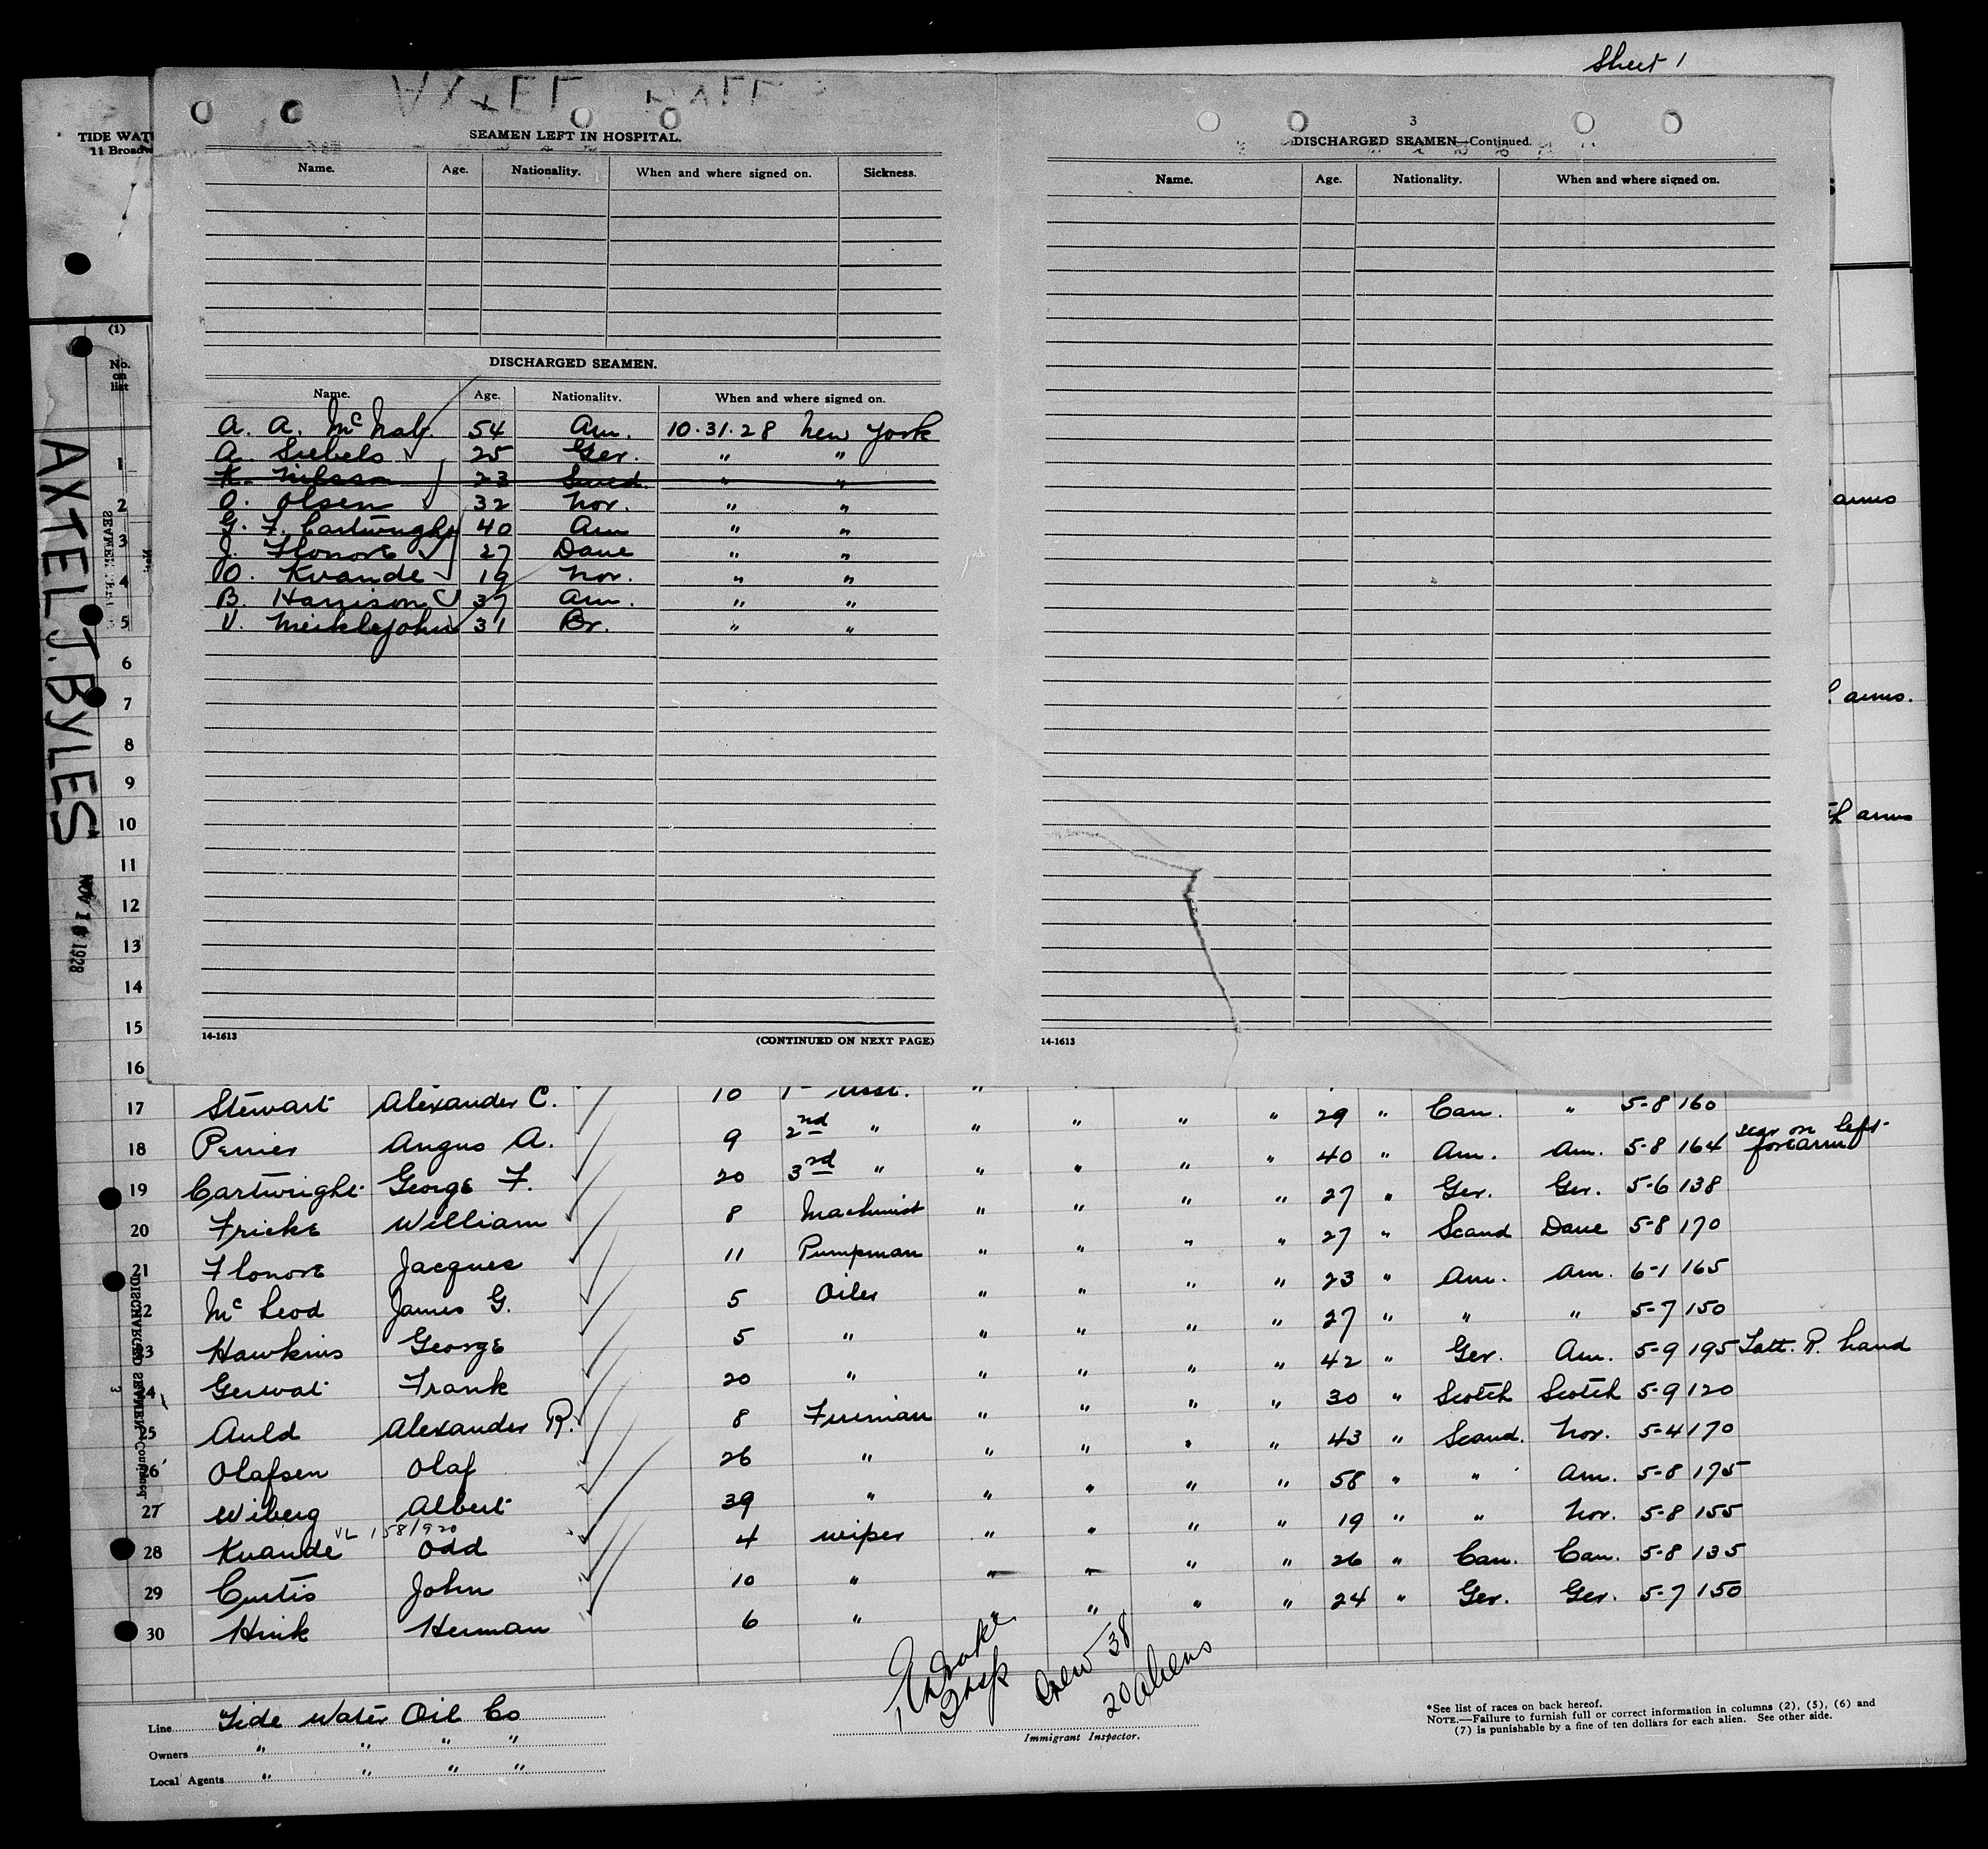 Sheet 1
TIDE WAT
11 Broadw
SEAMEN LEFT IN HOSPITAL.
Name. Age. Nationality. When and where signed on. Sickness.
DISCHARGED SEAMEN.
Name. Age. Nationality. When and where signed on.
A. A. McNab. 54 Am. 10.31.28 New York
A. Siebels 25 Ger. " "
K. Nilsson 23 Swed. " "
O. Olsen 32 Nor. " "
G. F. Cartwright 40 Am " "
J. Flonore 27 Dane " "
O. Kvande 19 Nor. " "
B. Harrison 37 Am. " "
V. Meiklejohn 31 Br. " "
14-1613 (CONTINUED ON NEXT PAGE)
3
DISCHARGED SEAMEN—Continued.
Name. Age. Nationality. When and where signed on.
14-1613
(1)
No. on list
AXTEL J. BYLES
NOV 1 1928
DISCHARGED SEAMEN—Continued
3
1
2
3
4
5
6
7
8
9
10
11
12
13
14
15
16
arms
arms.
arms
17 Stewart Alexander C. 10 1st Asst. "
18 Perrier Angus A. 9 2nd " " " " " 29 " Can. " 5-8 160
19 Cartwright George F. 20 3rd " " " " " 40 " Am. Am. 5-8 164 scar on left forearm
20 Fricke William 8 Machinist " " " " 27 " Ger. Ger. 5-6 138
21 Flonore Jacques 11 Pumpman " " " " 27 " Scand Dane 5-8 170
22 McLeod James G. 5 Oiler " " " " 23 " Am. Am. 6-1 165
23 Hawkins George 5 " " " " " 27 " " " 5-7 150
24 Gerwat Frank 20 " " " " " 42 " Ger. Am. 5-9 195 Tatt. R. hand
25 Auld Alexander R. 8 Fireman " " " " 30 " Scotch Scotch 5-9 120
26 Olafsen Olaf 26 " " " " " 43 " Scand. Nor. 5-4 170
27 Wiberg Albert 39 " " " " " 58 " " Am. 5-8 175
VL 158/920
28 Kvande Odd 4 Wiper " " " " 19 " " Nor. 5-8 155
29 Curtis John 10 " " " " " 26 " Can. Can. 5-8 135
30 Hink Herman 6 " " " " " 24 " Ger. Ger. 5-7 150
Insp
Crew 38
20 aliens
Immigrant Inspector.
Line Tide Water Oil Co
Owners " " " "
Local Agents " " " "
*See list of races on back hereof.
NOTE.—Failure to furnish full or correct information in columns (2), (5), (6) and
(7) is punishable by a fine of ten dollars for each alien. See other side.